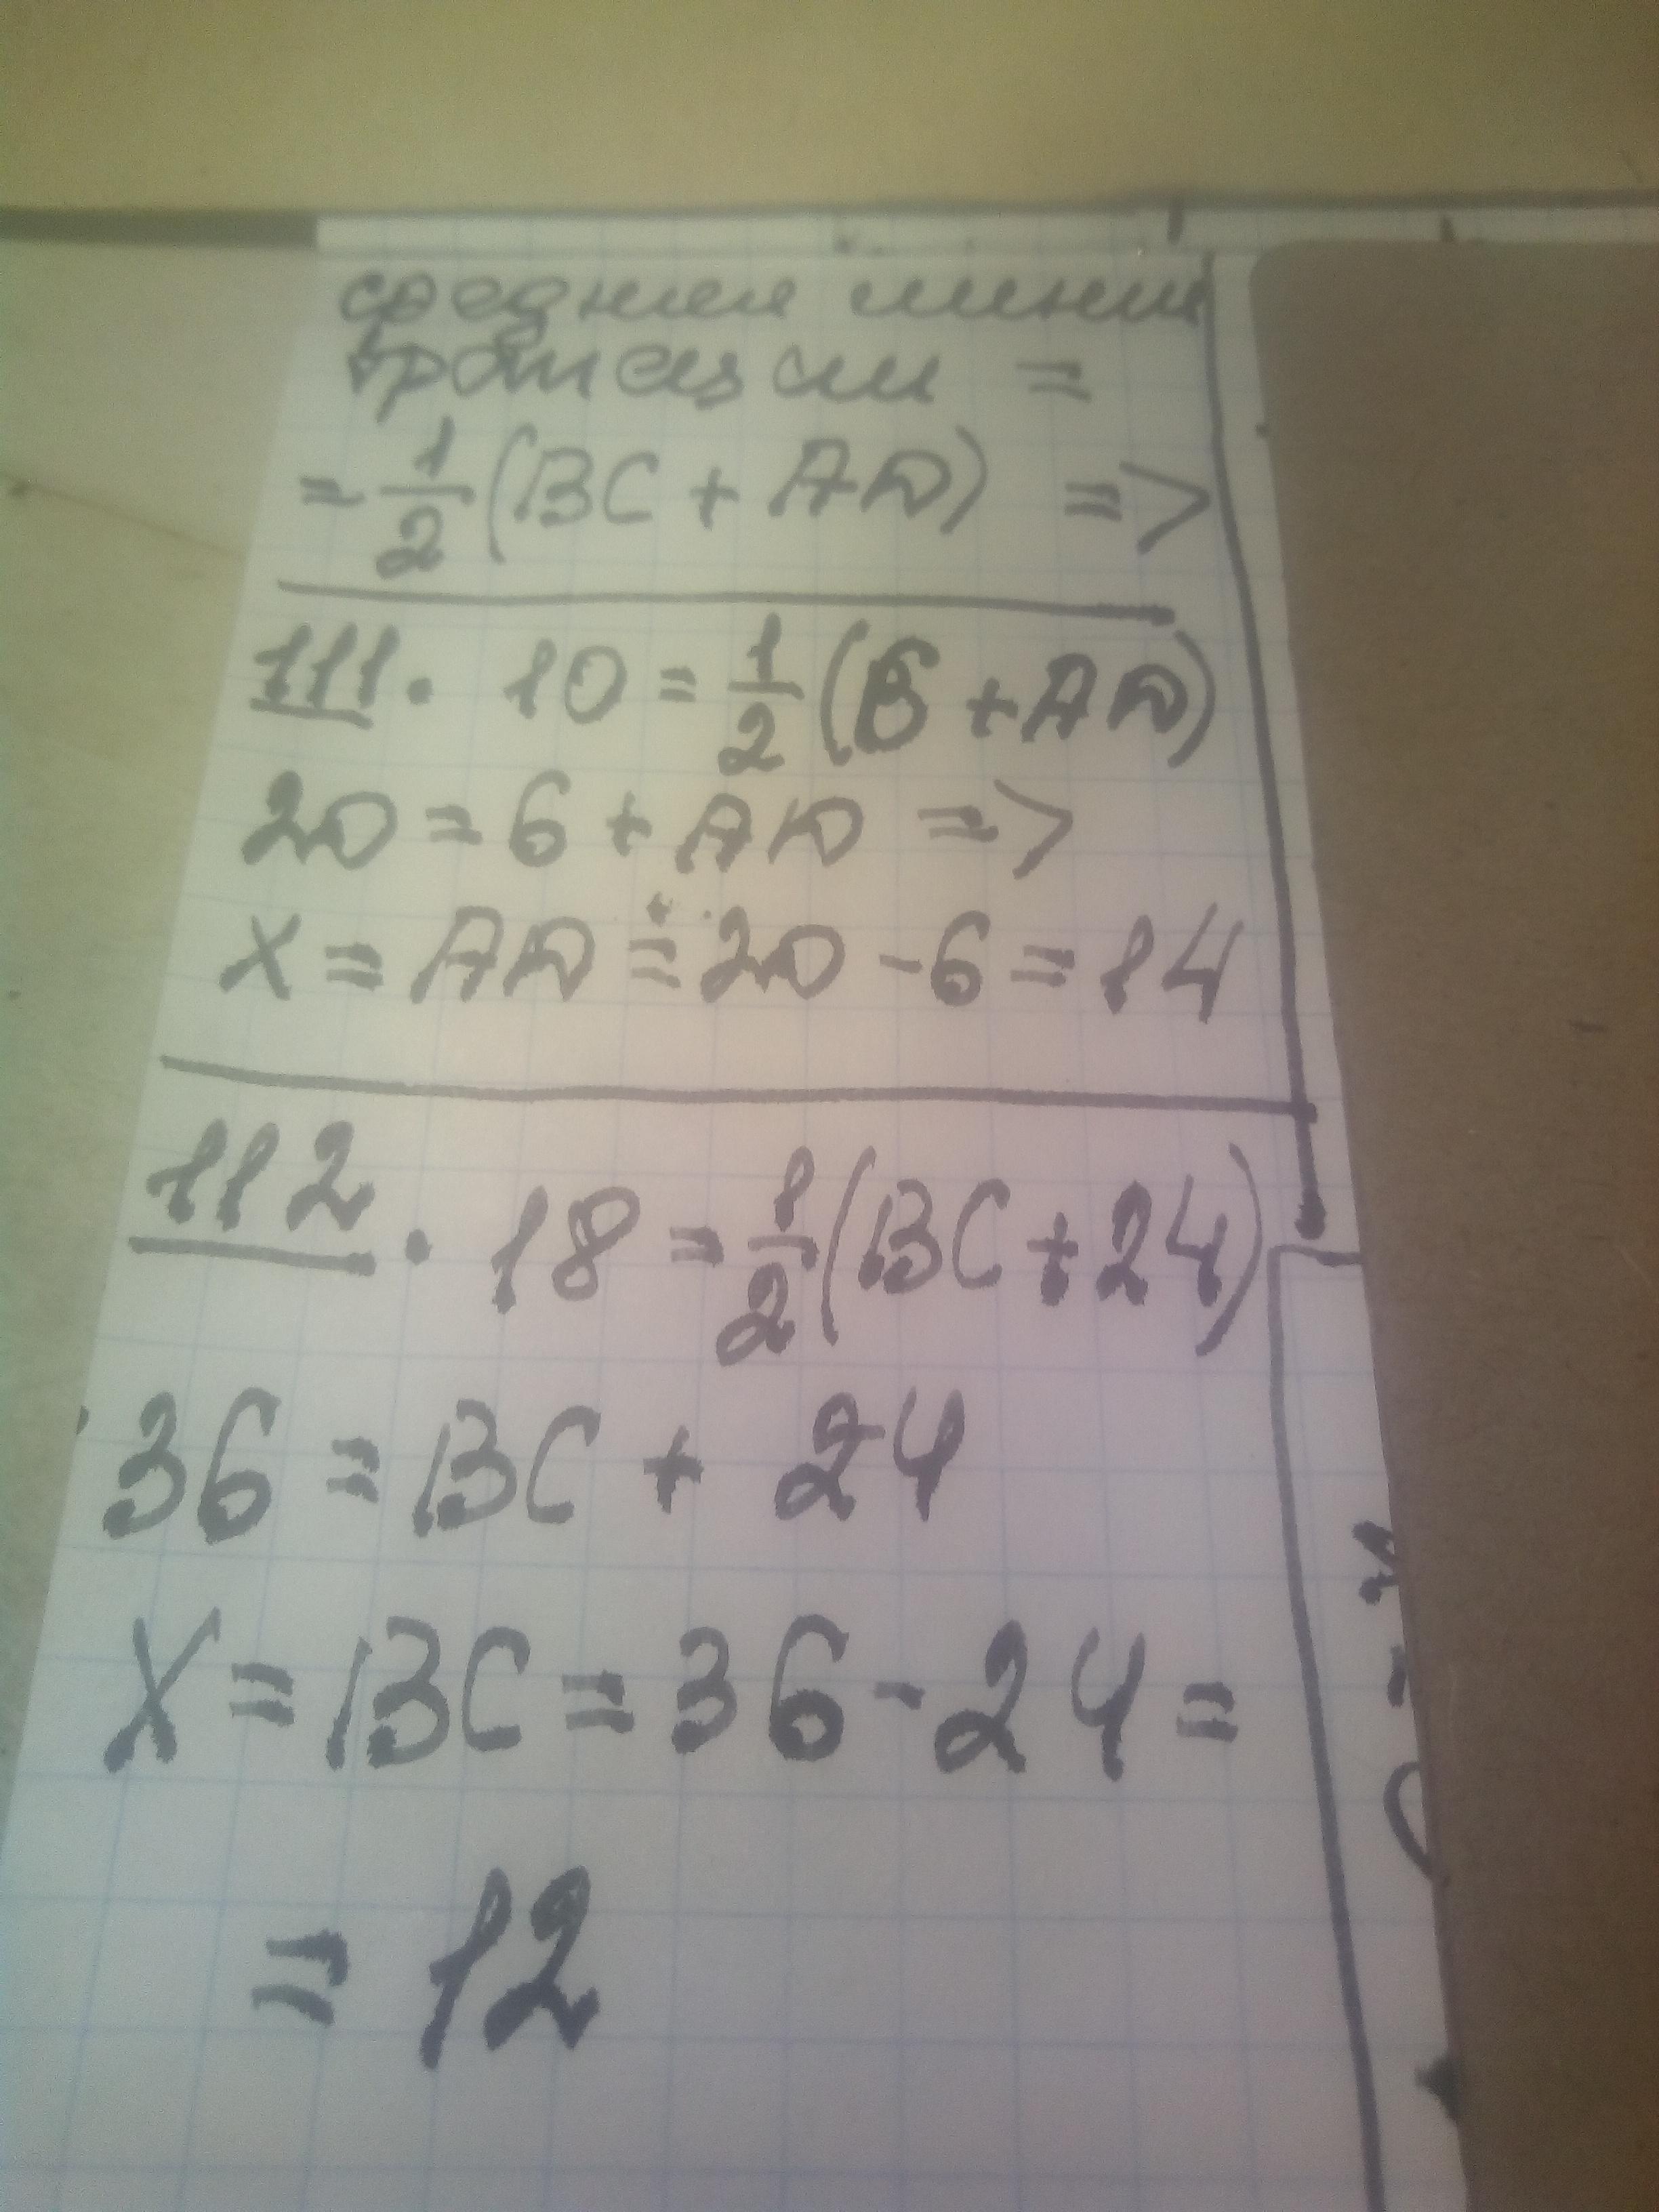 средняя линия
трапеции =
= 1/2 (BC + AD) =>
111. 10 = 1/2 (6 + AD)
20 = 6 + AD =>
x = AD = 20 - 6 = 14
112. 18 = 1/2 (BC + 24)
36 = BC + 24
X = BC = 36 - 24 =
= 12